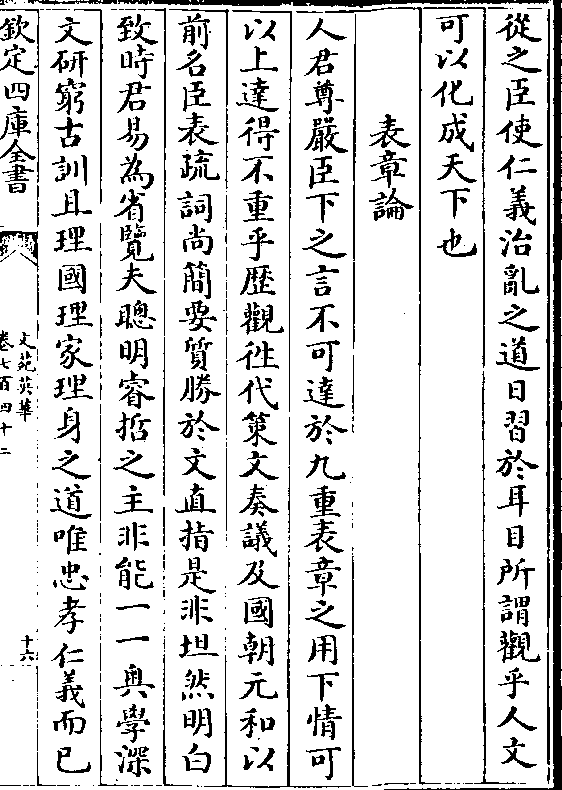 從之臣使仁義治亂之道日習於耳目所謂觀乎人文
可以化成天下也
表章論
人君尊嚴臣下之言不可達於九重表章之用下情可
以上達得不重乎歴觀徃代䇿文奏議及國朝元和以
前名臣表疏詞尚簡要質勝於文直指是非坦然明白
致時君易為省覽夫聰明睿哲之主非能一一奥學深
文研窮古訓且理國理家理身之道唯忠孝仁義而已
欽定四庫全書
文苑英華
卷七百四十二
十六